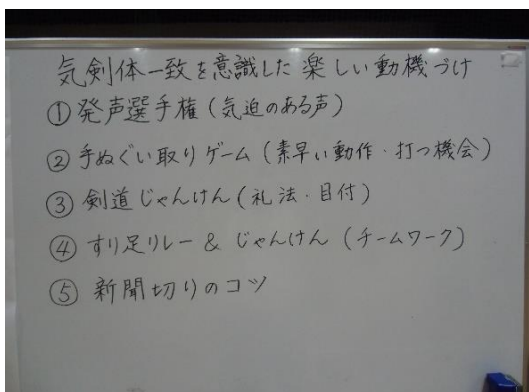 気剣体一致を意識した楽しい動機づけ
①発声選手権(気迫のある声)
②手ぬぐい取りゲーム(素早い動作・打つ機会)
③剣道じゃんけん(礼法・目付)
④すり足リレー&じゃんけん(チームワーク)
⑤新聞切りのコツ